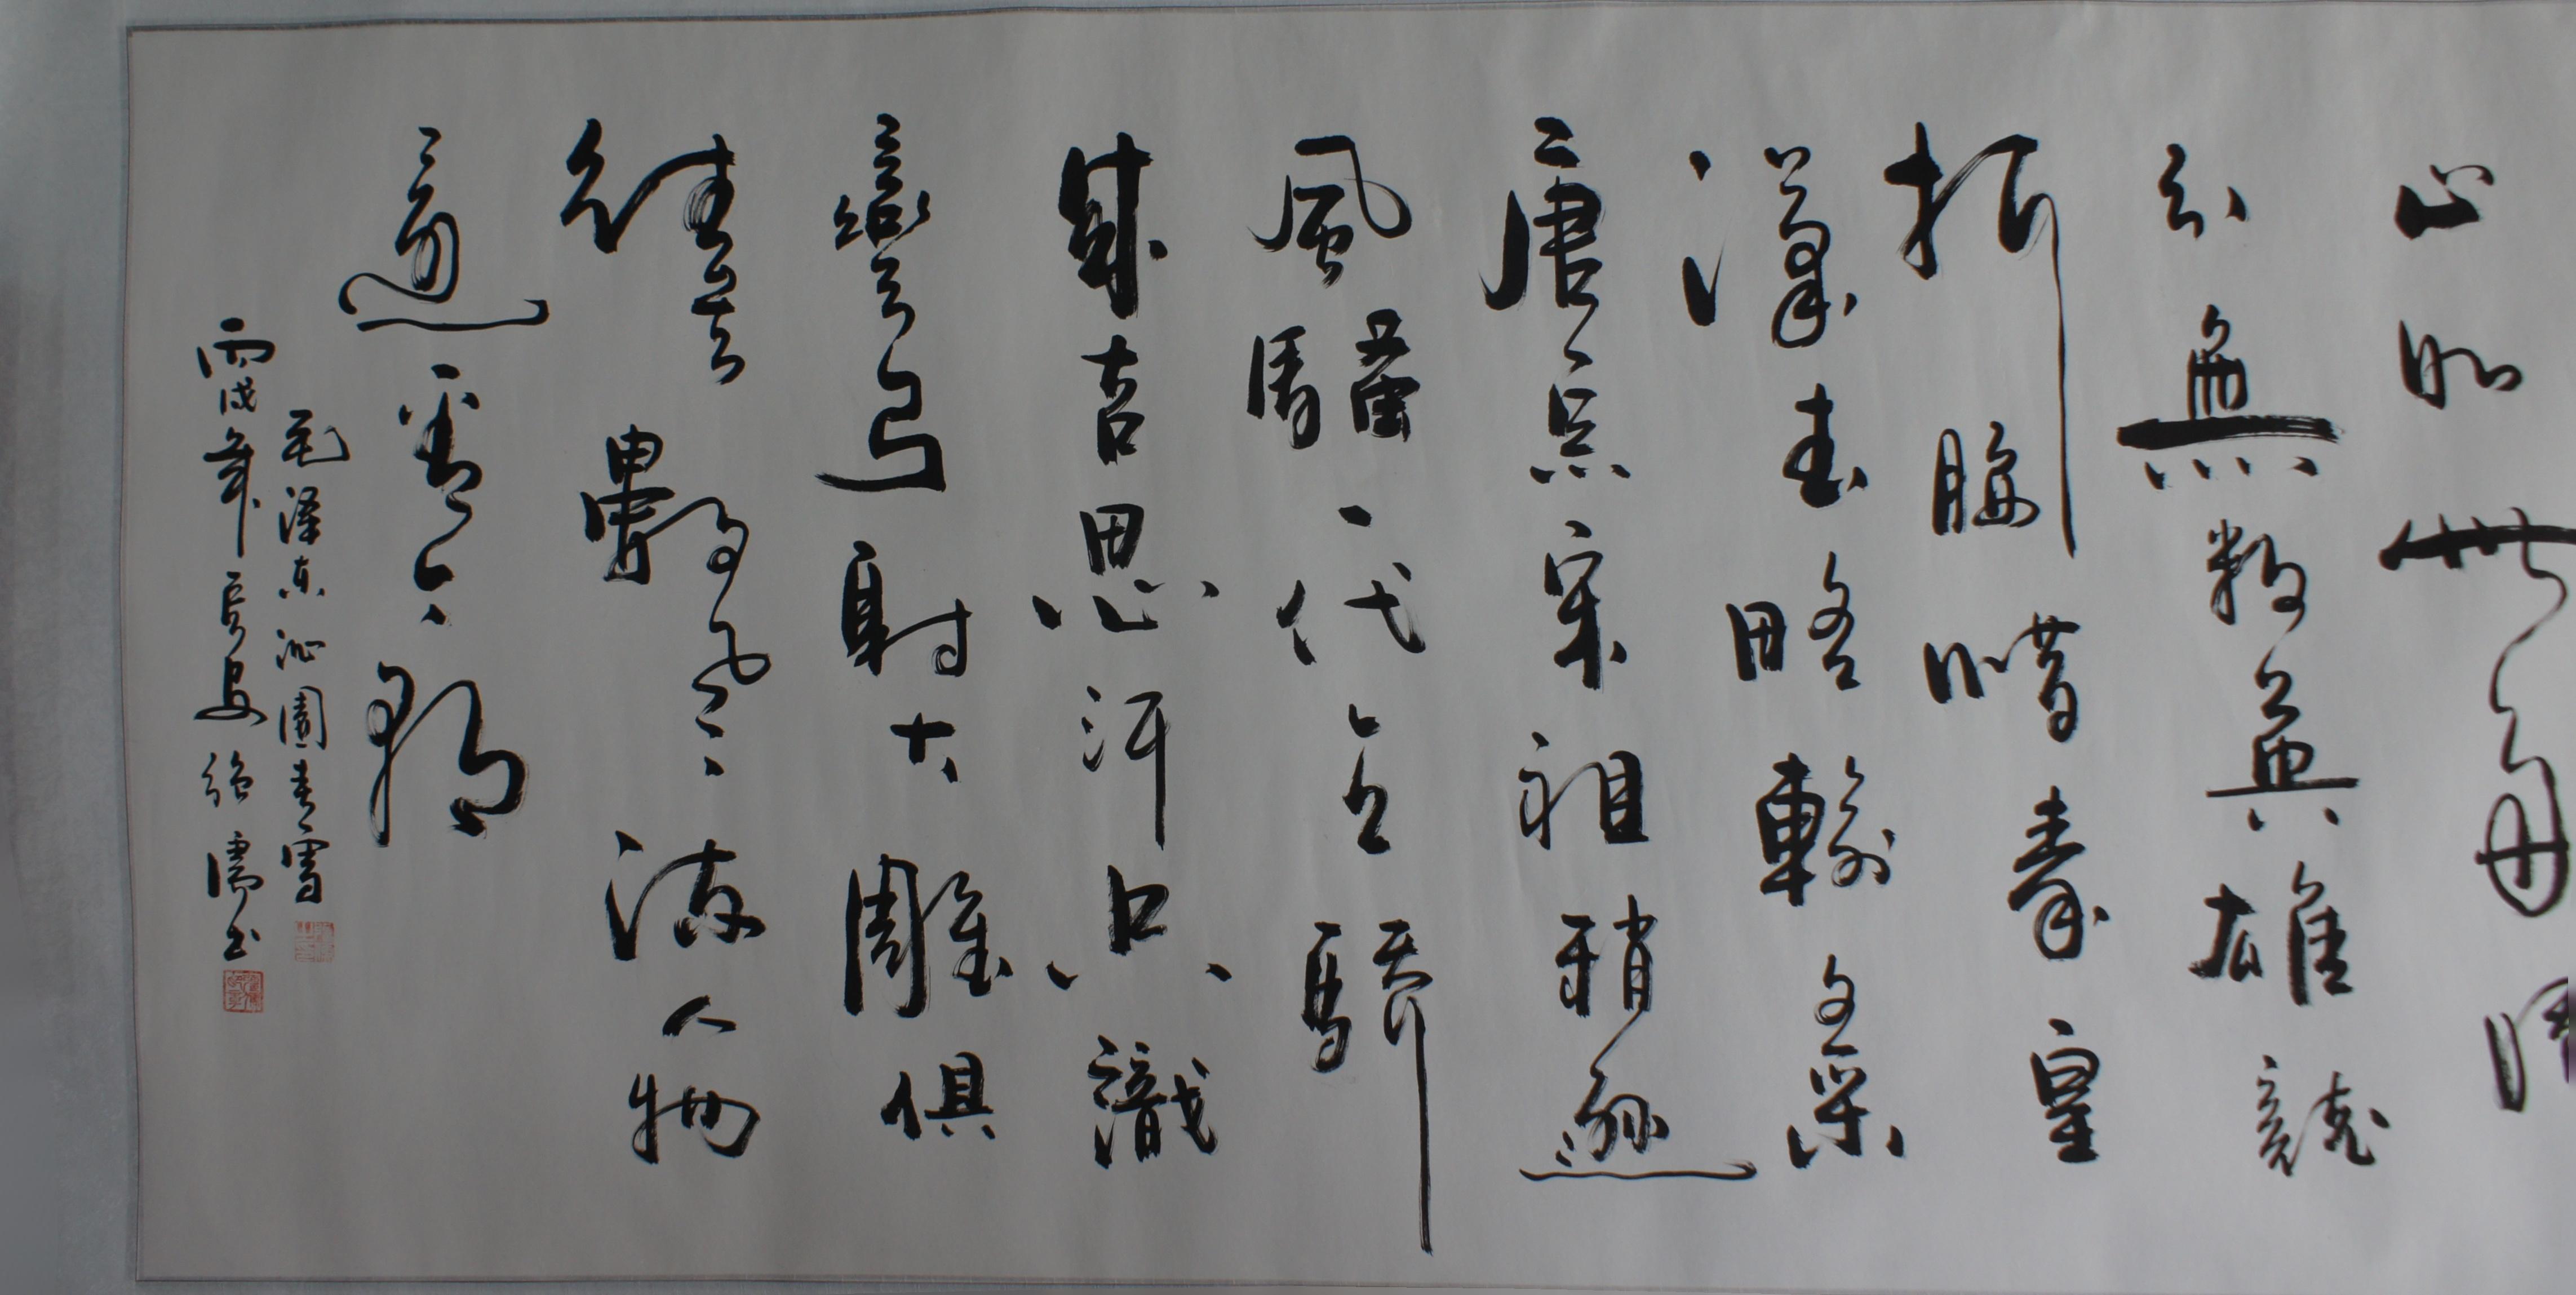 山如此多
引無數英雄競
折腰惜秦皇
漢武略輸文采
唐宗宋祖稍遜
風騷一代天驕
成吉思汗只識
彎弓射大雕俱
往矣數風流人物
還看今朝
毛澤東沁園春雪
丙戌年長安儒书